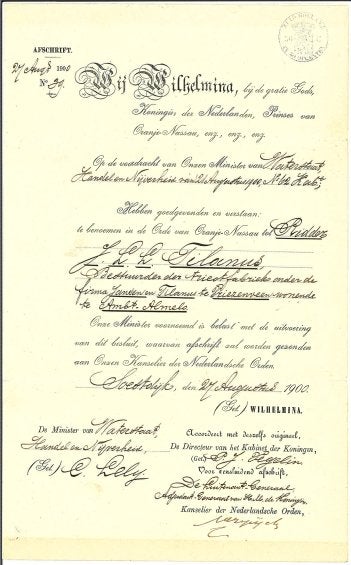 AFSCHRIFT.
27 Augs 1900
No. 39.
Wij Wilhelmina, bij de gratie Gods,
Koningin der Nederlanden, Prinses van
Oranje-Nassau, enz., enz., enz.
Op de voordracht van Onzen Minister van Waterstaat,
Handel en Nijverheid van 21 Augustus 1900, No. 62 Kabt;
Hebben goedgevonden en verstaan:
te benoemen in de Orde van Oranje-Nassau tot Ridder
J. L. L. Tilanus,
Bestuurder der fabriek onder de
firma Jansen en Tilanus te Vriezenveen wonende
te Ambt-Almelo.
Onze Minister voornoemd is belast met de uitvoering
van dit besluit, waarvan afschrift zal worden gezonden
aan Onzen Kanselier der Nederlandsche Orden.
Soestdijk, den 27 Augustus 1900.
(Get.) WILHELMINA.
De Minister van Waterstaat,
Handel en Nijverheid.
(Get.) C. Lely.
Accordeert met deszelfs origineel,
De Directeur van het Kabinet der Koningin,
(Get.)
Voor eensluidend afschrift,
De Luitenant-Generaal
Adjudant Generaal van H. M. de Koningin
Kanselier der Nederlandsche Orden,